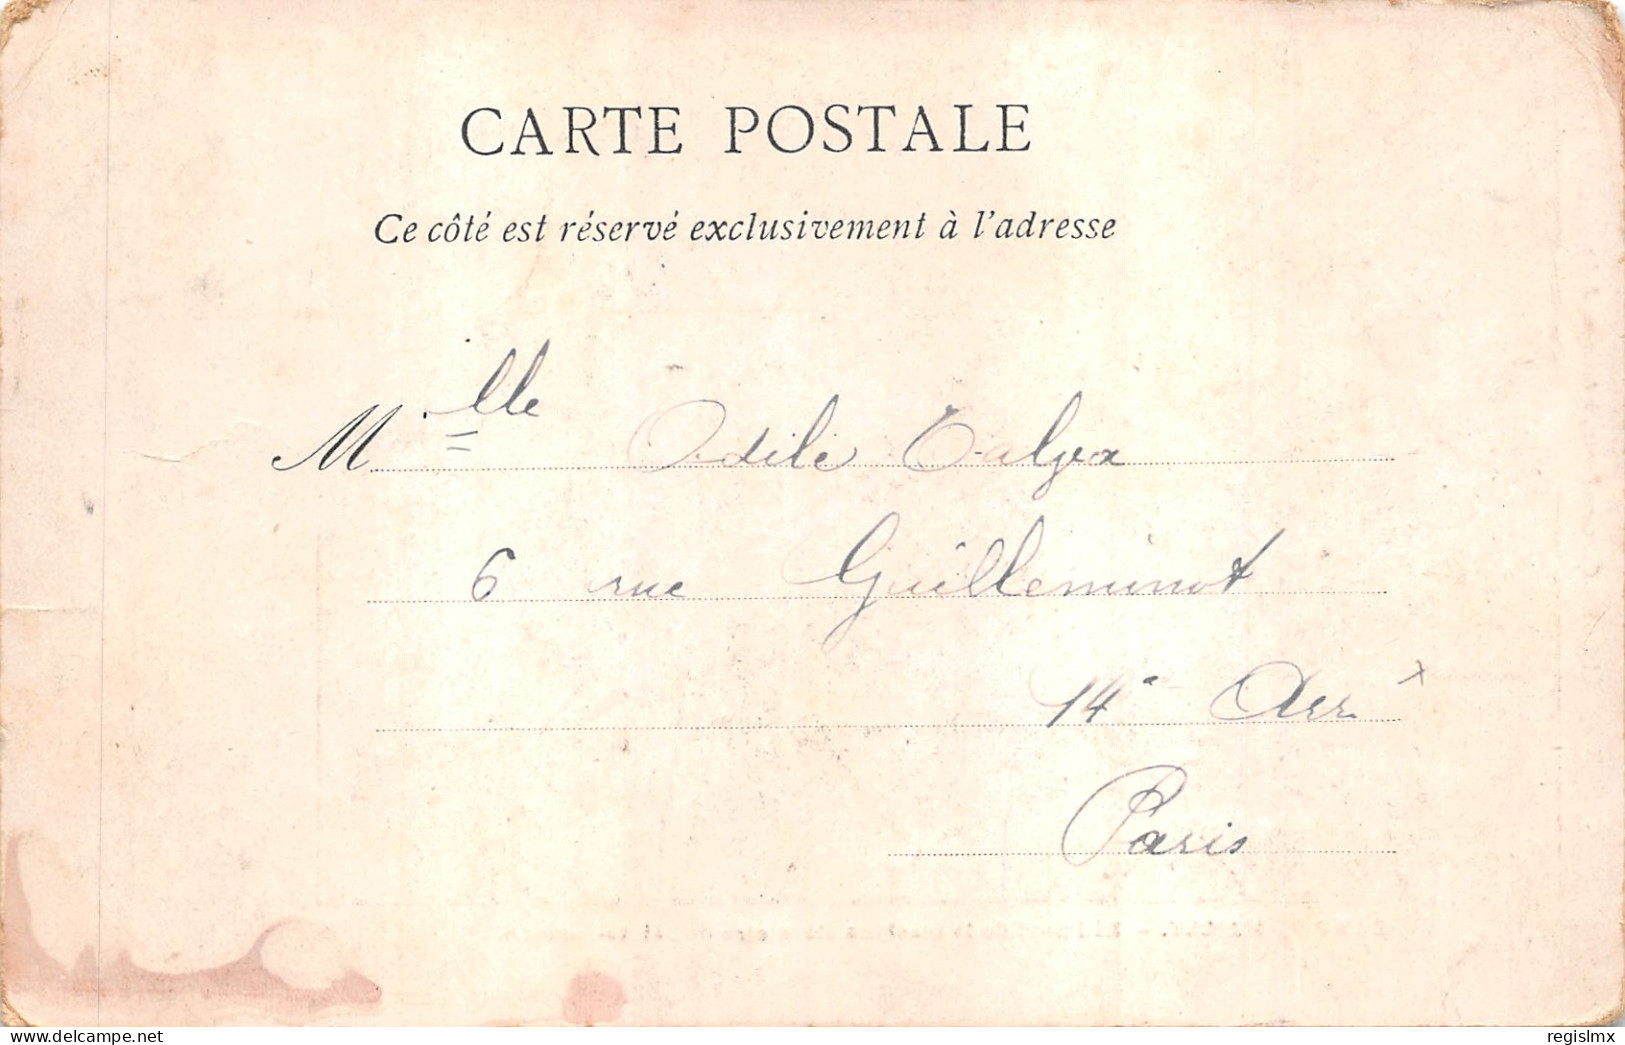 CARTE POSTALE
Ce côté est réservé exclusivement à l'adresse
Mlle Odile
6 rue Guilleminot
14e Arr
Paris
www.delcampe.net
regislmx